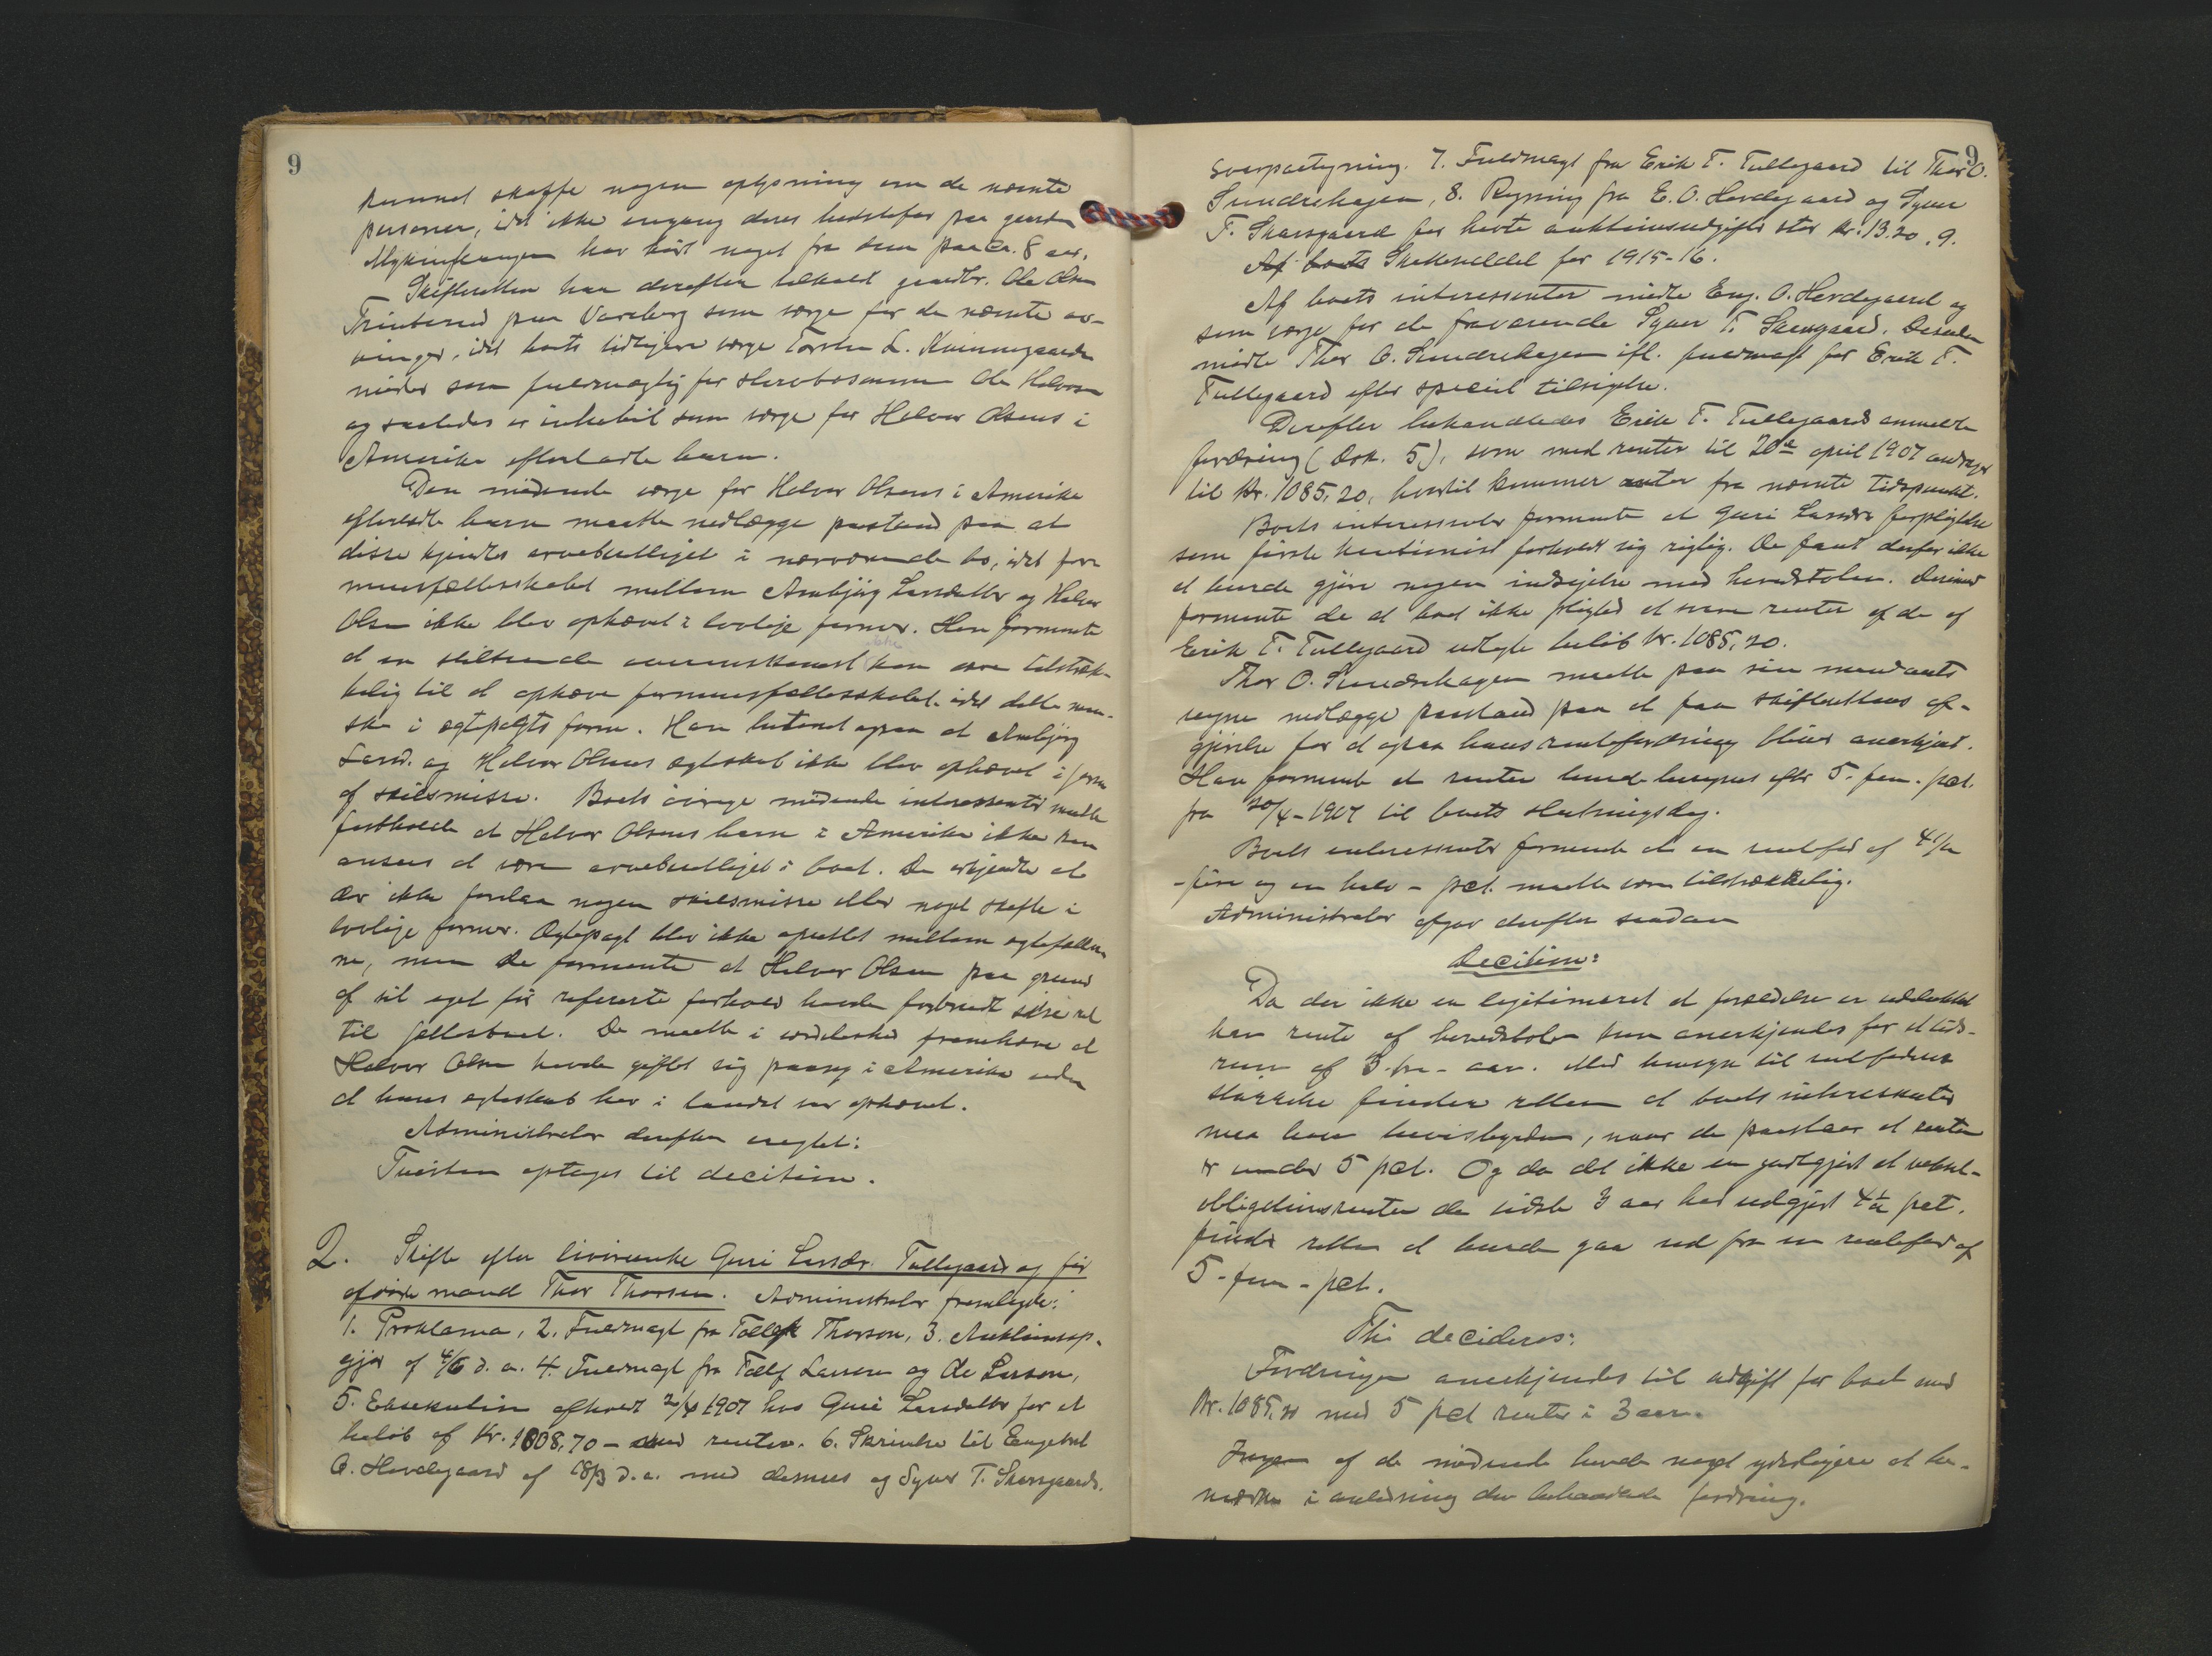 9
kunnet skaffe nogen oplysning om de nævnte
personer, idet ikke engang deres bedstefar paa gaarden
har hørt noget fra dem paa ca. 8 aar.
Skifteretten har derefter tilkaldt gaardbr. Ole Olsen
paa som værge for de nævnte ar-
vinger, idet boets tidligere værge Torsten L.
møder som fuldmægtig for Ole Halvorsen
og saaledes er inhabil som værge for Halvor Olsens i
Amerika efterladte barn.
Den mødende værge for Halvor Olsens i Amerika
efterladte barn maatte nedlægge paastand paa at
disse kjendes arveberettiget i nærværende bo, idet for-
muesfællesskabet mellem Ambjørg Larsdatter og Halvor
Olsen ikke blev ophævet i lovlige former. Han formente
at en stiltiende overenskomst kan være tilstræk-
kelig til at ophæve formuesfællesskabet, idet dette maa
ske i egtepakts form. Han paa at Ambjørg
Larsd. og Halvor Olsens egteskab ikke blev ophævet i form
af skilsmisse. Boets øvrige mødende interessenter maatte
fastholde at Halvor Olsens barn i Amerika ikke kan
ansees at være arveberettiget i boet. De erkjendte at
der ikke forelaa nogen skilsmisse eller noget skifte i
lovlige former. Egtepagt blev ikke oprettet mellem egtefælle-
ne, men de formente at Halvor Olsen paa grund
af sit eget før refererte forhold havde forbrudt sin ret
til fællesboet. De maatte i fremhæve at
Halvor Olsen havde giftet sig paany i Amerika uden
at hans egteskab her i landet var ophævet.
Administrator derefter
Tvisten optages til decition.
2. Skifte efter Guri Larsdr. Tullegaard og før
afdøde mand Thor Thorsen. Administrator fremlagde:
1. Proklama, 2. Fuldmagt fra Thorson, 3. Auktionsop-
gjør af 4/6 d. a. 4. Fuldmagt fra Larson og Ole Larson,
5. Eksekution afholdt 20/4 1907 hos Guri Larsdatter for et
beløb af Kr. 1008,70 – med renter. 6. Skrivelse til Engebret
O. Hovdegaard af 18/3 d. a. med dennes og Syver T. Skarsgaards
9
svarpaategning. 7. Fuldmagt fra Erik T. Tullegaard til Thor O.
Sundrehagen, 8. Regning fra E. O. Hovdegaard og Syver
T. Skarsgaard for havte auktionsudgifter stor Kr. 13.20, 9.
Af boets Skatteseddel for 1915-16.
Af boets interessenter mødte Eng. O. Hovdegaard og
som værge for de fraværende Syver T. Skarsgaard. Desuden
mødte Thor O. Sundrehagen ifl. fuldmagt for Erik T.
Tullegaard efter speciel tilsigelse.
Derefter behandledes Erik T. Tullegaards anmeldte
fordring (dok. 5), som med renter til 20de april 1907 andrager
til Kr. 1085,20, hvortil kommer renter fra nævnte tidspunkt.
Boets interessenter formente at Guri Larsdrs forpligtelse
som første kautionist forholdt sig rigtig. De fandt derfor ikke
at burde gjøre nogen indsigelse mod hovedstolen. Derimod
formente de at boet ikke pligted at svare renter af de af
Erik T. Tullegaard udlagte beløb Kr. 1085,20.
Thor O. Sundrehagen maatte paa sin mandants
vegne nedlægge paastand paa at faa skifterettens af-
gjørelse for at ogsaa hans rentefordring bliver anerkjent.
Han formente at renten burde beregnes efter 5 - fem - pct.
fra 20/4-1907 til boets slutningsdag.
Boets interessenter formente at en rentefod af 4 1/2
- fire og en halv - pct. maatte være tilstrækkelig.
Administrator afgav derefter saadan
Decition:
Da der ikke er legitimeret at forældelse er udelukket
kan rente af hovedstolen kun anerkjendes for et tids-
rum af 3 - tre - aar. Med hensyn til rentefodens
størrelse finder retten at boets interessenter
maa have bevisbyrden, naar de paastaar at renten
er under 5 pct. Og da det ikke er godtgjort at
obligationsrenten de sidste 3 aar har udgjort 4 1/2 pct.
finder retten at burde gaa ud fra en rentefod af
5 - fem - pct.
Thi decideres:
Fordringen anerkjendes til udgift for boet med
Kr. 1085,20 med 5 pct renter i 3 aar.
Ingen af de mødende havde noget yderligere at be-
mærke i anledning den behandlede fordring.